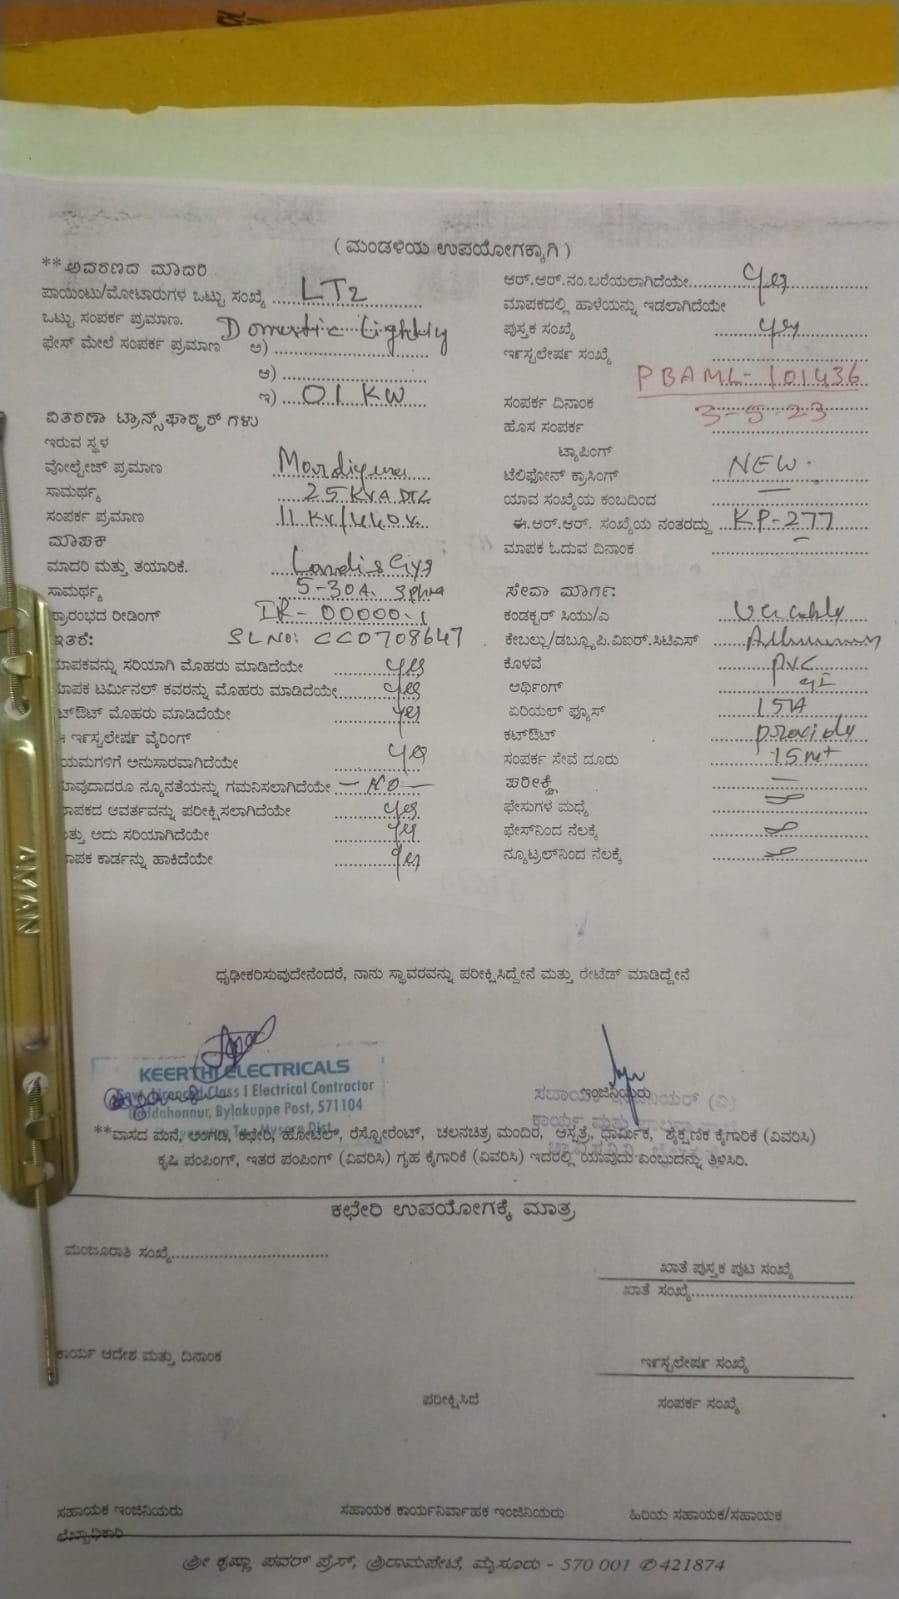 ( ಮಂಡಳಿಯ ಉಪಯೋಗಕ್ಕಾಗಿ )
**ಆವರಣದ ಮಾದರಿ
ಪಾಯಿಂಟು/ಮೋಟಾರುಗಳ ಒಟ್ಟು ಸಂಖ್ಯೆ LT2
ಒಟ್ಟು ಸಂಪರ್ಕ ಪ್ರಮಾಣ. Domestic Lighting
ಫೇಸ್ ಮೇಲೆ ಸಂಪರ್ಕ ಪ್ರಮಾಣ ಅ)
ಆ)
ಇ) 01 KW
ವಿತರಣಾ ಟ್ರಾನ್ಸ್‌ಫಾರ್ಮರ್ ಗಳು
ಇರುವ ಸ್ಥಳ
ವೋಲ್ಟೇಜ್ ಪ್ರಮಾಣ
ಸಾಮರ್ಥ್ಯ 25 KVA
ಸಂಪರ್ಕ ಪ್ರಮಾಣ 11 KV/440.V.
ಮಾಪಕ
ಮಾದರಿ ಮತ್ತು ತಯಾರಿಕೆ.
ಸಾಮರ್ಥ್ಯ 5-30A.
ಪ್ರಾರಂಭದ ರೀಡಿಂಗ್ IR-00000.1
ಇತರೆ: SLNO: CC0708647
ಮಾಪಕವನ್ನು ಸರಿಯಾಗಿ ಮೊಹರು ಮಾಡಿದೆಯೇ yes
ಮಾಪಕ ಟರ್ಮಿನಲ್ ಕವರನ್ನು ಮೊಹರು ಮಾಡಿದೆಯೇ yes
ಕಟ್‌ಔಟ್ ಮೊಹರು ಮಾಡಿದೆಯೇ yes
ಈ ಇನ್ಸ್ಟಲೇಷನ್ ವೈರಿಂಗ್
ನಿಯಮಗಳಿಗೆ ಅನುಸಾರವಾಗಿದೆಯೇ yes
ಯಾವುದಾದರೂ ನ್ಯೂನತೆಯನ್ನು ಗಮನಿಸಲಾಗಿದೆಯೇ - NO -
ಮಾಪಕದ ಆವರ್ತವನ್ನು ಪರೀಕ್ಷಿಸಲಾಗಿದೆಯೇ yes
ಮತ್ತು ಅದು ಸರಿಯಾಗಿದೆಯೇ yes
ಮಾಪಕ ಕಾರ್ಡನ್ನು ಹಾಕಿದೆಯೇ yes
ಆರ್.ಆರ್.ನಂ.ಬರೆಯಲಾಗಿದೆಯೇ yes
ಮಾಪಕದಲ್ಲಿ ಹಾಳೆಯನ್ನು ಇಡಲಾಗಿದೆಯೇ
ಪುಸ್ತಕ ಸಂಖ್ಯೆ yes
ಇನ್ಸ್ಟಲೇಷನ್ ಸಂಖ್ಯೆ
PBAML-101436
ಸಂಪರ್ಕ ದಿನಾಂಕ 3-5-23
ಹೊಸ ಸಂಪರ್ಕ
ಟ್ಯಾಪಿಂಗ್
ಟೆಲಿಫೋನ್ ಕ್ರಾಸಿಂಗ್ NEW.
ಯಾವ ಸಂಖ್ಯೆಯ ಕಂಬದಿಂದ
ಈ.ಆರ್.ಆರ್. ಸಂಖ್ಯೆಯ ನಂತರದ್ದು KP-277
ಮಾಪಕ ಓದುವ ದಿನಾಂಕ
ಸೇವಾ ಮಾರ್ಗ:
ಕಂಡಕ್ಟರ್ ಸಿಯು/ಎ
ಕೇಬಲ್ಲು/ಡಬ್ಲ್ಯೂ.ಪಿ.ವಿಐರ್.ಸಿಟಿಎಸ್
ಕೊಳವೆ PVC
ಅರ್ಥಿಂಗ್ GI
ಏರಿಯಲ್ ಫ್ಯೂಸ್ 15A
ಕಟ್‌ಔಟ್
ಸಂಪರ್ಕ ಸೇವೆ ದೂರು 15 mt
ಪರೀಕ್ಷೆ
ಫೇಸುಗಳ ಮಧ್ಯೆ
ಫೇಸ್‌ನಿಂದ ನೆಲಕ್ಕೆ
ನ್ಯೂಟ್ರಲ್‌ನಿಂದ ನೆಲಕ್ಕೆ
ಧೃಢೀಕರಿಸುವುದೇನೆಂದರೆ, ನಾನು ಸ್ಥಾವರವನ್ನು ಪರೀಕ್ಷಿಸಿದ್ದೇನೆ ಮತ್ತು ರೇಟೆಡ್ ಮಾಡಿದ್ದೇನೆ
KEERTHI ELECTRICALS
Govt. Licenced Class I Electrical Contractor
Bylakuppe Post, 571104
ಇಂಜಿನಿಯರು
**ವಾಸದ ಮನೆ, ಅಂಗಡಿ, ಕಛೇರಿ, ಹೋಟೆಲ್, ರೆಸ್ಟೋರೆಂಟ್, ಚಲನಚಿತ್ರ ಮಂದಿರ, ಆಸ್ಪತ್ರೆ, ಧಾರ್ಮಿಕ, ಶೈಕ್ಷಣಿಕ ಕೈಗಾರಿಕೆ (ವಿವರಿಸಿ)
ಕೃಷಿ ಪಂಪಿಂಗ್, ಇತರ ಪಂಪಿಂಗ್ (ವಿವರಿಸಿ) ಗೃಹ ಕೈಗಾರಿಕೆ (ವಿವರಿಸಿ) ಇದರಲ್ಲಿ ಯಾವುದು ಎಂಬುದನ್ನು ತಿಳಿಸಿರಿ.
ಕಛೇರಿ ಉಪಯೋಗಕ್ಕೆ ಮಾತ್ರ
ಮಂಜೂರಾತಿ ಸಂಖ್ಯೆ
ಖಾತೆ ಪುಸ್ತಕ ಪುಟ ಸಂಖ್ಯೆ
ಖಾತೆ ಸಂಖ್ಯೆ
ಕಾರ್ಯ ಆದೇಶ ಮತ್ತು ದಿನಾಂಕ
ಇನ್ಸ್ಟಲೇಷನ್ ಸಂಖ್ಯೆ
ಪರೀಕ್ಷಿಸಿದೆ
ಸಂಪರ್ಕ ಸಂಖ್ಯೆ
ಸಹಾಯಕ ಇಂಜಿನಿಯರು
ಸಹಾಯಕ ಕಾರ್ಯನಿರ್ವಾಹಕ ಇಂಜಿನಿಯರು
ಹಿರಿಯ ಸಹಾಯಕ/ಸಹಾಯಕ
ಲೆಖ್ಖಾಧಿಕಾರಿ
ಶ್ರೀ ಕೃಷ್ಣಾ ಪವರ್ ಪ್ರೆಸ್, ಶ್ರೀರಾಮಪೇಟೆ, ಮೈಸೂರು - 570 001 ✆ 421874
AMAN